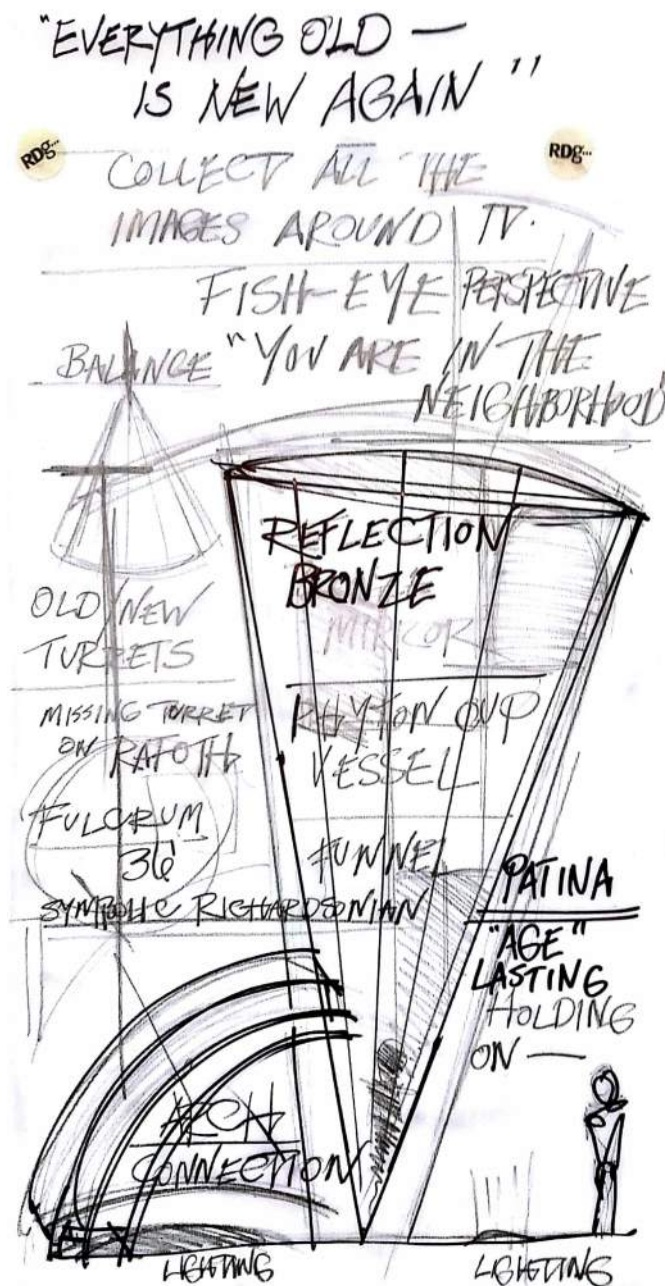 "EVERYTHING OLD —
IS NEW AGAIN"
RDg...
RDg...
COLLECT ALL THE
IMAGES AROUND
FISH-EYE PERSPECTIVE
BALANCE
"YOU ARE IN THE
NEIGHBORHOOD"
REFLECTION
BRONZE
MIRROR
OLD/NEW
TURRETS
MISSING TURRET
ON
RHYTON CUP
VESSEL
FULCRUM
36'
FUNNEL
SYMBOLIC RICHARDSONIAN
PATINA
"AGE"
LASTING
HOLDING
ON —
ARCH
CONNECTION
LIGHTING
LIGHTING